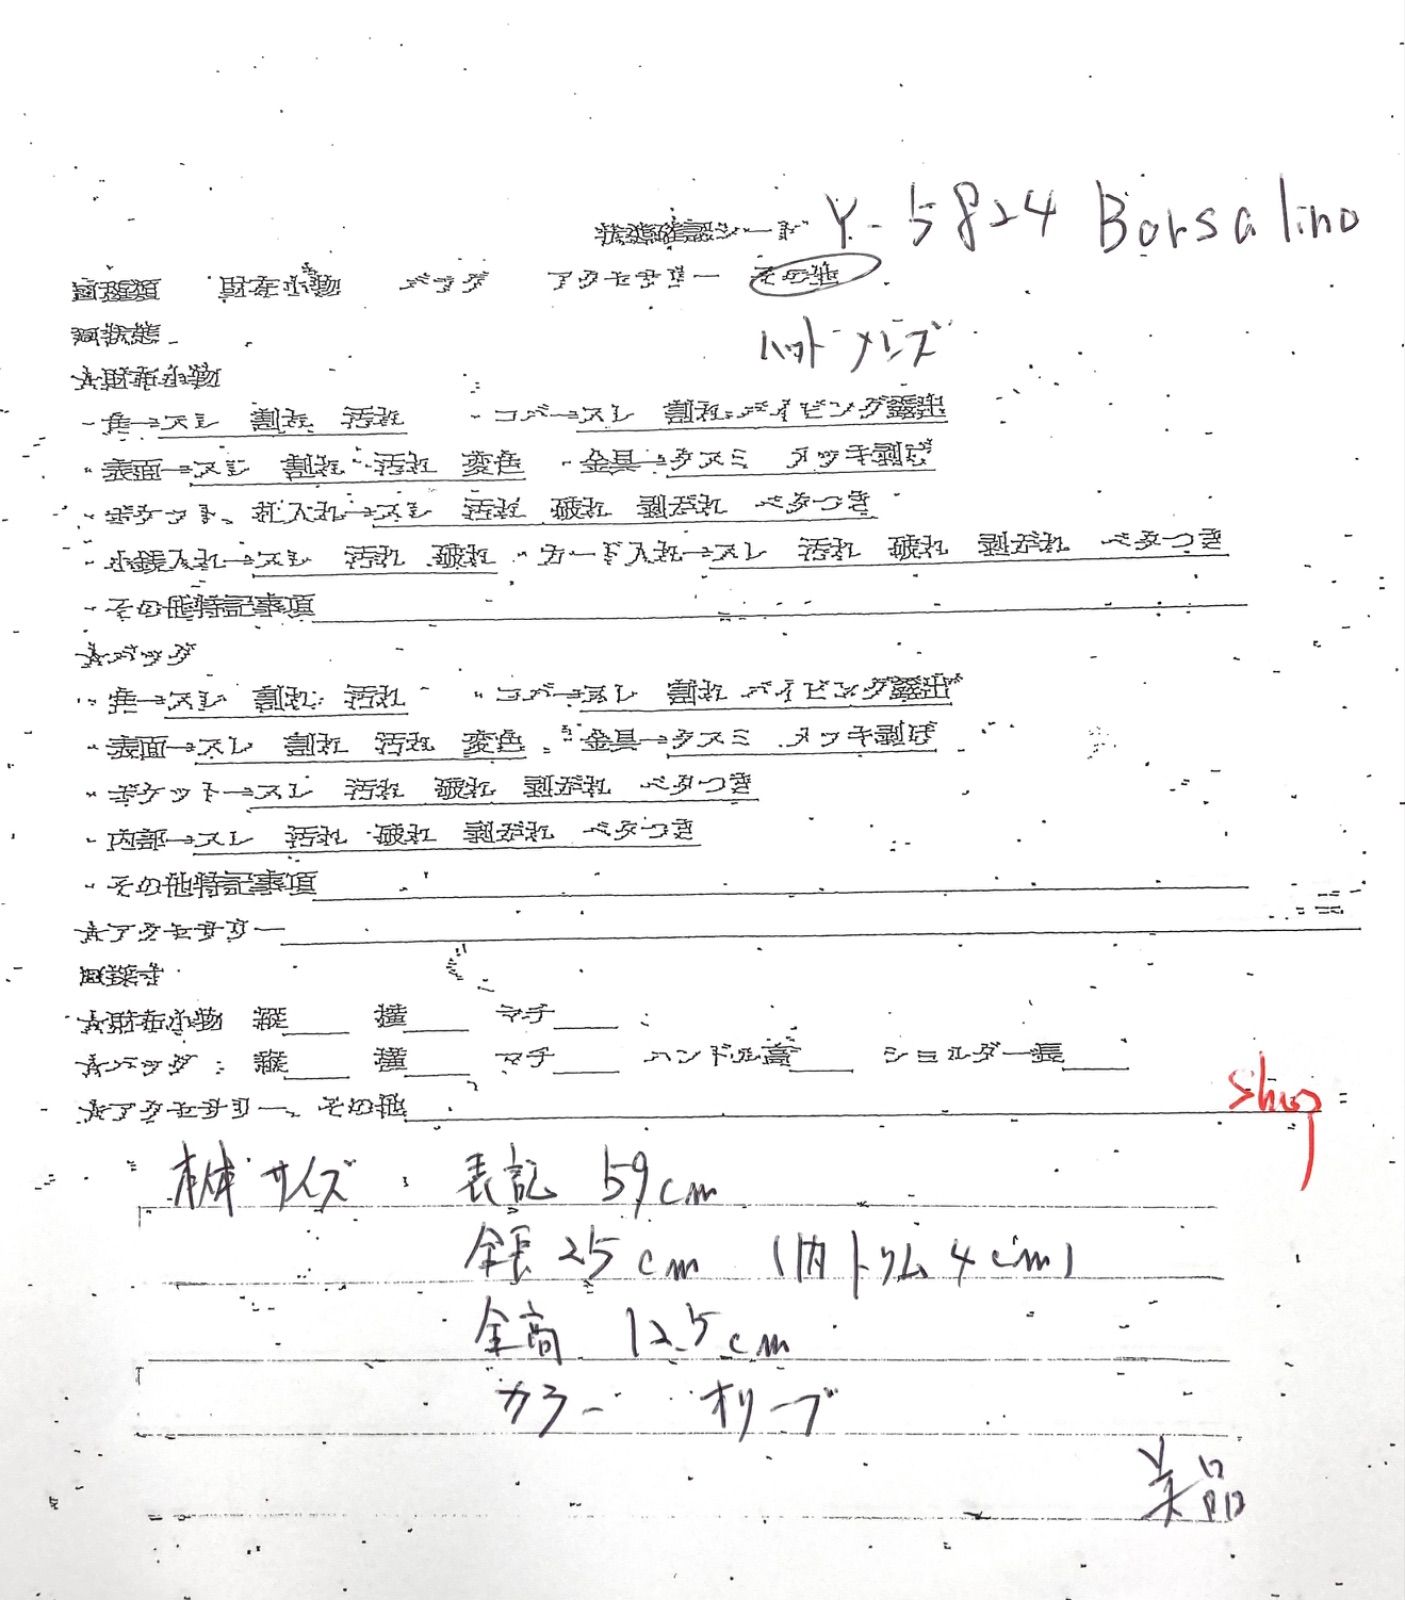 状態確認シート Y-5824 Borsalino
財布小物 バッグ アクセサリー その他
ハット メンズ
状態
☆財布小物
・角→スレ 割れ 汚れ ・コバ→スレ 割れ パイピング露出
・表面→スレ 割れ 汚れ 変色 ・金具→クスミ メッキ剥げ
・ポケット、札入れ→スレ 汚れ 破れ 剥がれ ベタつき
・小銭入れ→スレ 汚れ 破れ ・カード入れ→スレ 汚れ 破れ 剥がれ ベタつき
・その他特記事項
☆バッグ
・角→スレ 割れ 汚れ ・コバ→スレ 割れ パイピング露出
・表面→スレ 割れ 汚れ 変色 ・金具→クスミ メッキ剥げ
・ポケット→スレ 汚れ 破れ 剥がれ ベタつき
・内部→スレ 汚れ 破れ 剥がれ ベタつき
・その他特記事項
☆アクセサリー
採寸
☆財布小物 縦 横 マチ
☆バッグ 縦 横 マチ ハンドル高 ショルダー長
☆アクセサリー、その他
Shop
本体サイズ 表記 59cm
全長 25cm (内トリム4cm)
全高 12.5cm
カラー オリーブ
美品